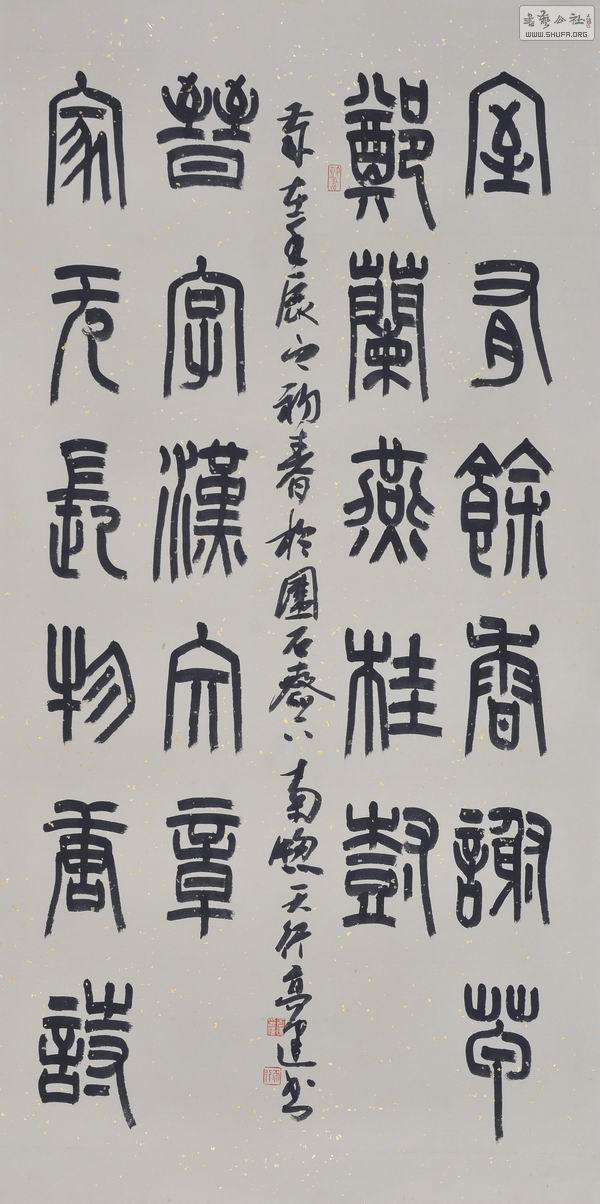 室有餘香謝草
鄭蘭燕桂樹
家无長物唐詩
晉字漢文章
歲在壬辰之初春於石齋下南窗天行書
書藝公社
WWW.SHUFA.ORG